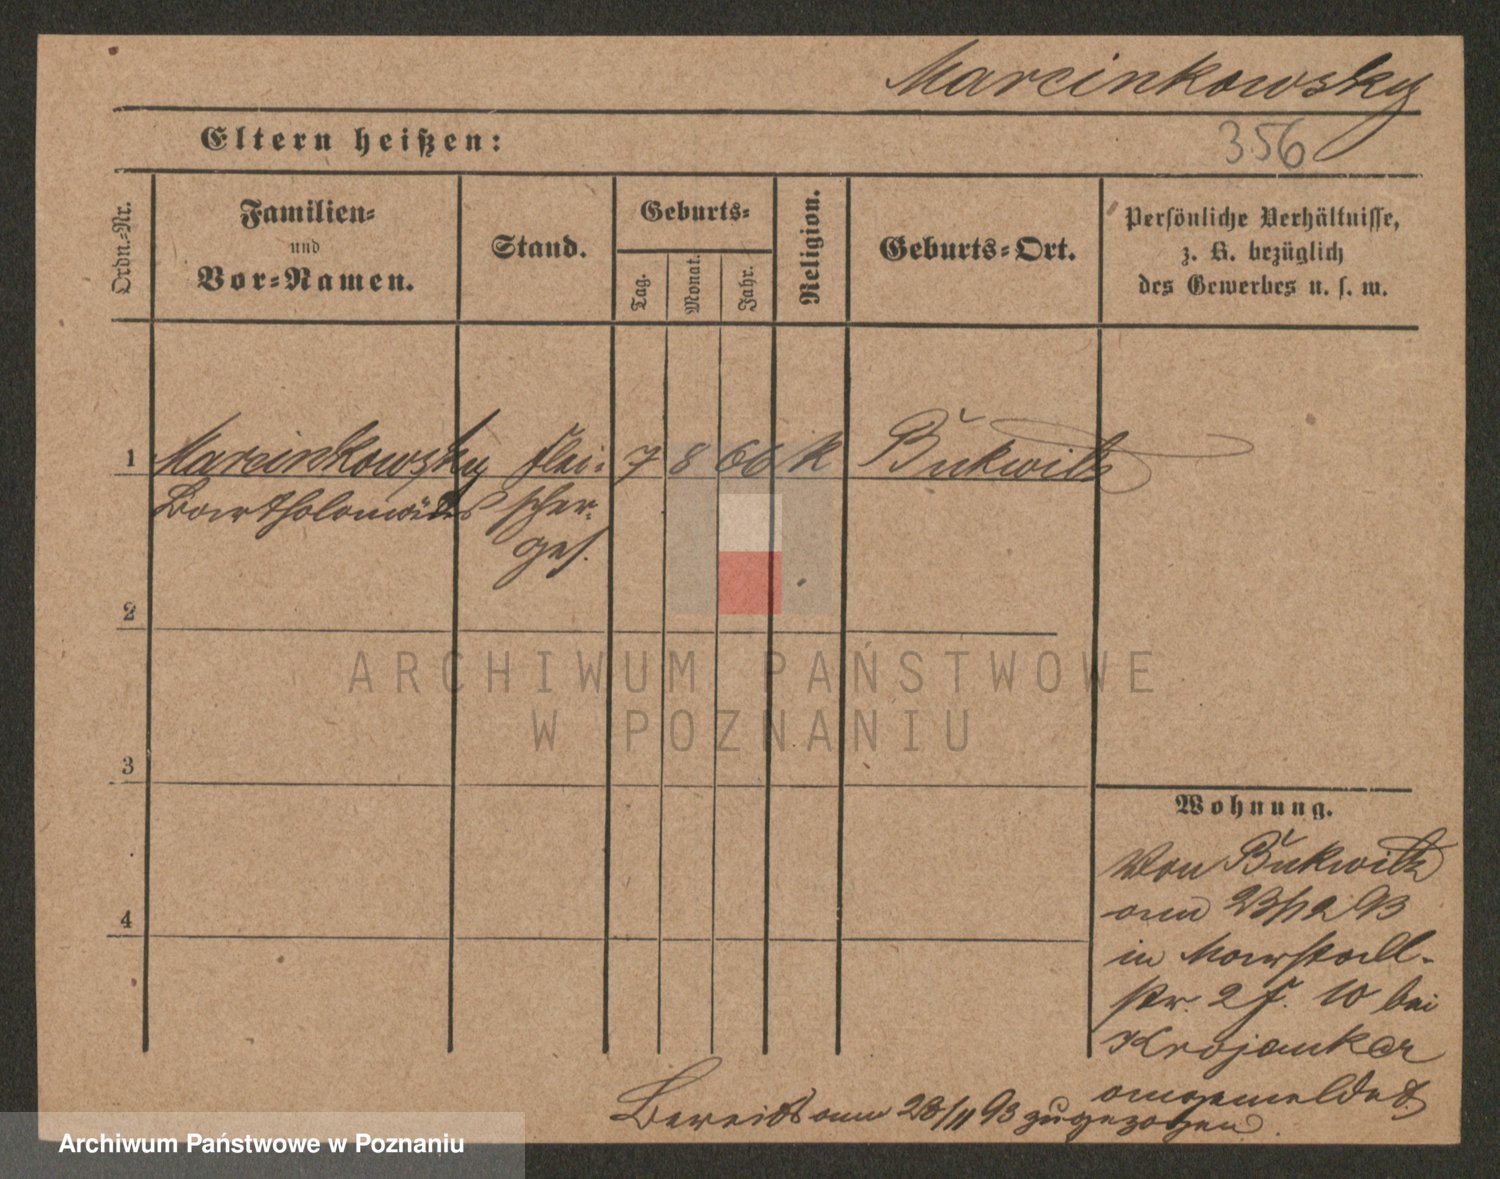 Marcinkowsky
Eltern heißen:
356
Ordn.-Nr.
Familien-
und
Vor-Namen.
Stand.
Geburts-
Tag.
Monat.
Jahr.
Religion.
Geburts-Ort.
Persönliche Verhältnisse,
z. B. bezüglich
des Gewerbes u. s. w.
1 Marcinkowsky Flei- 7 8 66 k Bukwitz
Bartholomäus scher-
ges.
2
ARCHIWUM PAŃSTWOWE
W POZNANIU
3
Wohnung.
Von Bukwitz
am 23/12 93
in Marstall-
str. 2 F. 10 bei
Krojanker
angemeldet.
4
Bereits am 23/11 93 zugezogen.
Archiwum Państwowe w Poznaniu